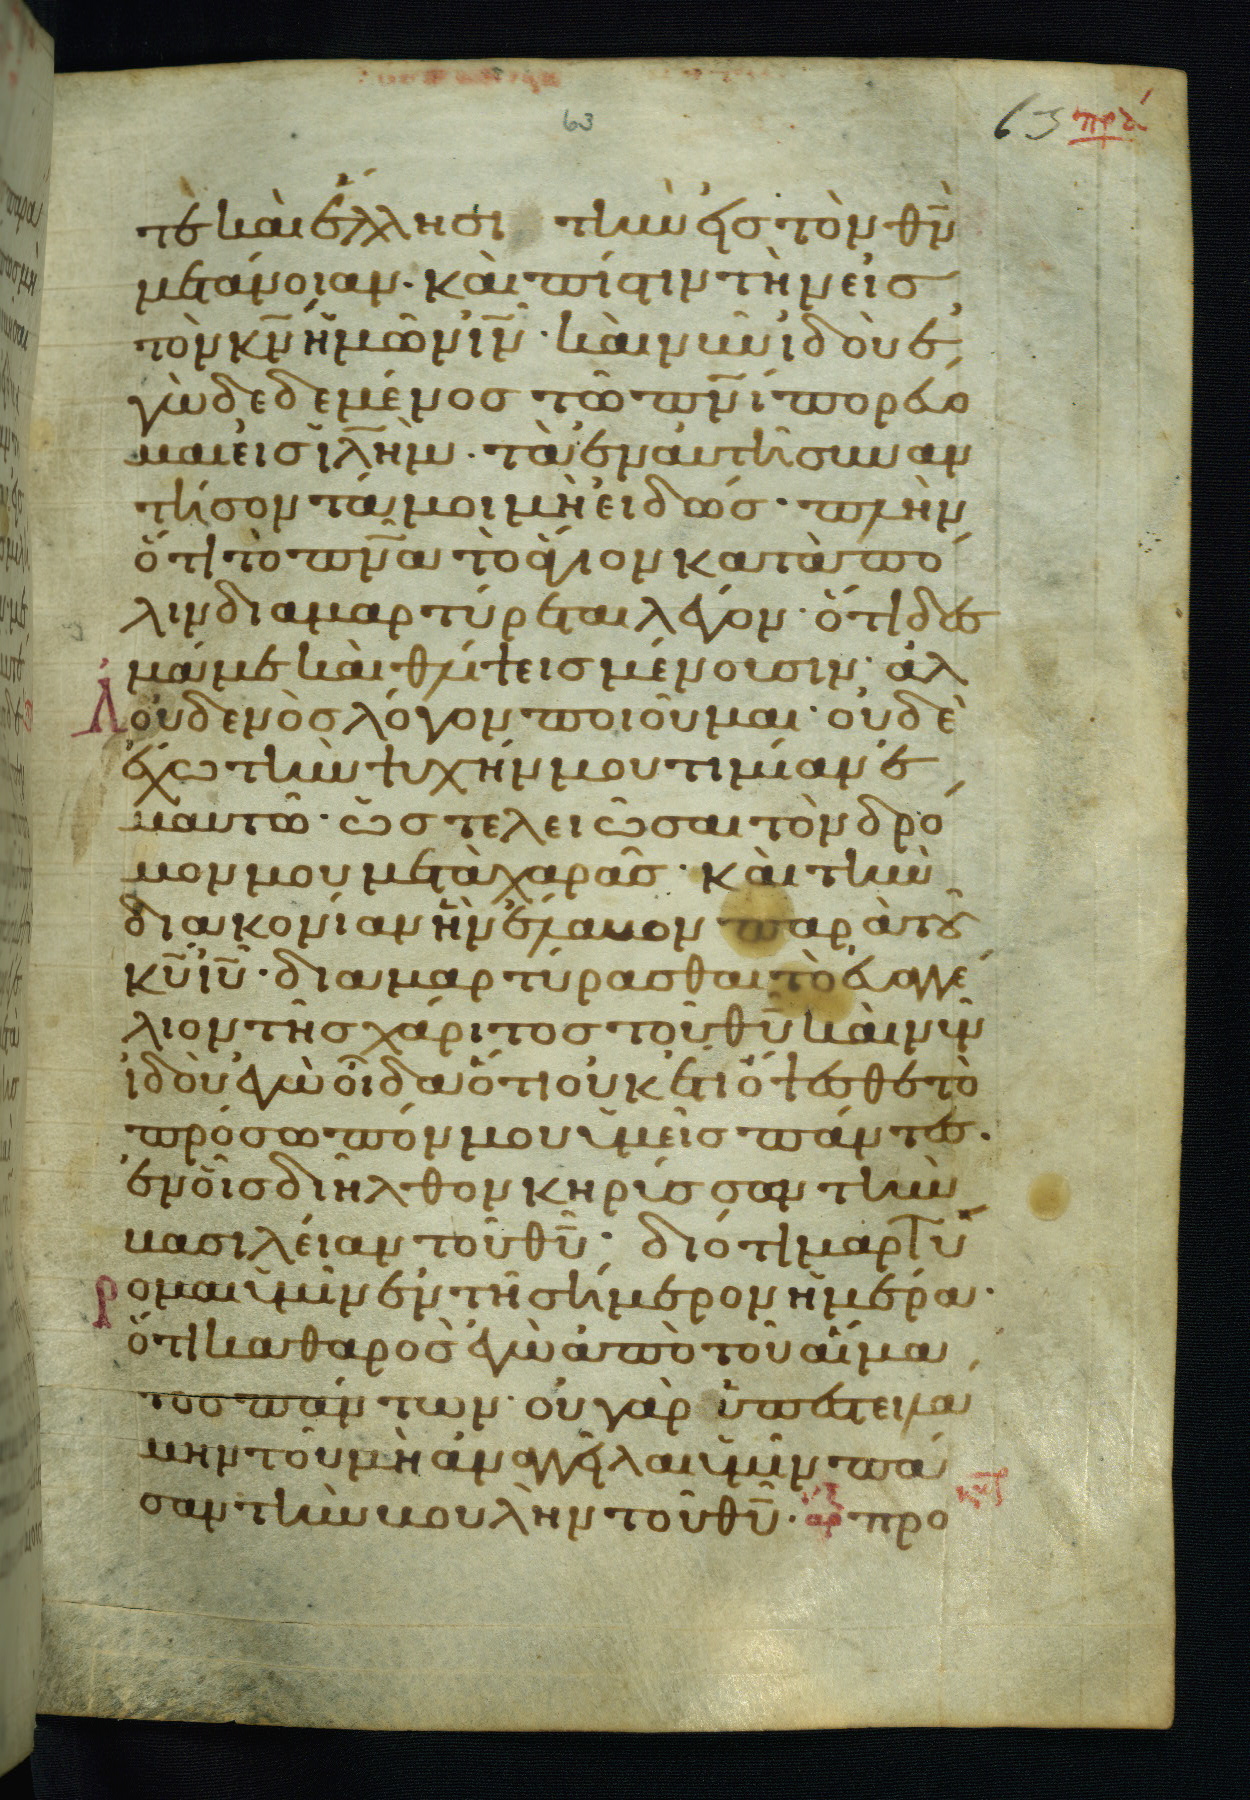 63 πρά
63
τε καὶ ἕλλησι τὴν εἰς τὸν θ̅ν̅
μετάνοιαν· καὶ πίστιν τὴν εἰς
τὸν κ̅ν̅ ἡμῶν ι̅ν̅· καὶ νῦν ἰδοὺ ἐ
γὼ δεδεμένος τῶ π̅ν̅ι πορεύο
μαι εἰς ἱ̅λ̅ημ· τὰ ἐν αὐτῆ συναν
τήσοντά μοι μὴ εἰδώς· πλὴν
ὅτι τὸ π̅ν̅α τὸ ἅγιον κατὰ πό
λιν διαμαρτύρεται λέγον· ὅτι δεσ
μά με καὶ θλίψεις μένουσιν· ἀλ
λ οὐδενὸς λόγον ποιοῦμαι· οὐδὲ
ἔχω τὴν ψυχήν μου τιμίαν ἐ
μαυτῶ· ὡς τελειῶσαι τὸν δρό
μον μου μετὰ χαρᾶς· καὶ τὴν
διακονίαν ἣν ἔλαβον παρὰ τοῦ
κ̅υ̅ ι̅υ̅· διαμαρτύρασθαι τὸ εὐαγγέ
λιον τῆς χάριτος τοῦ θ̅υ̅ καὶ νῦν
ἰδοὺ ἐγὼ οἶδα ὅτι οὐκ έτι ὄψεσθε τὸ
πρόσωπόν μου ὑμεῖς πάντες·
ἐν οἷς διῆλθον κηρύσσων τὴν
βασιλείαν τοῦ θ̅υ̅· διότι μαρτύ
ρομαι ὑμῖν ἐν τῆ σήμερον ἡμέρα·
ὅτι καθαρος ἐγὼ ἀπὸ τοῦ αἵμα
τος πάντων· οὐ γὰρ ὑπεστειλά
μην τοῦ μὴ ἀναγγεῖλαι ὑμῖν πᾶ
σαν τὴν βουλὴν τοῦ θ̅υ̅· προ